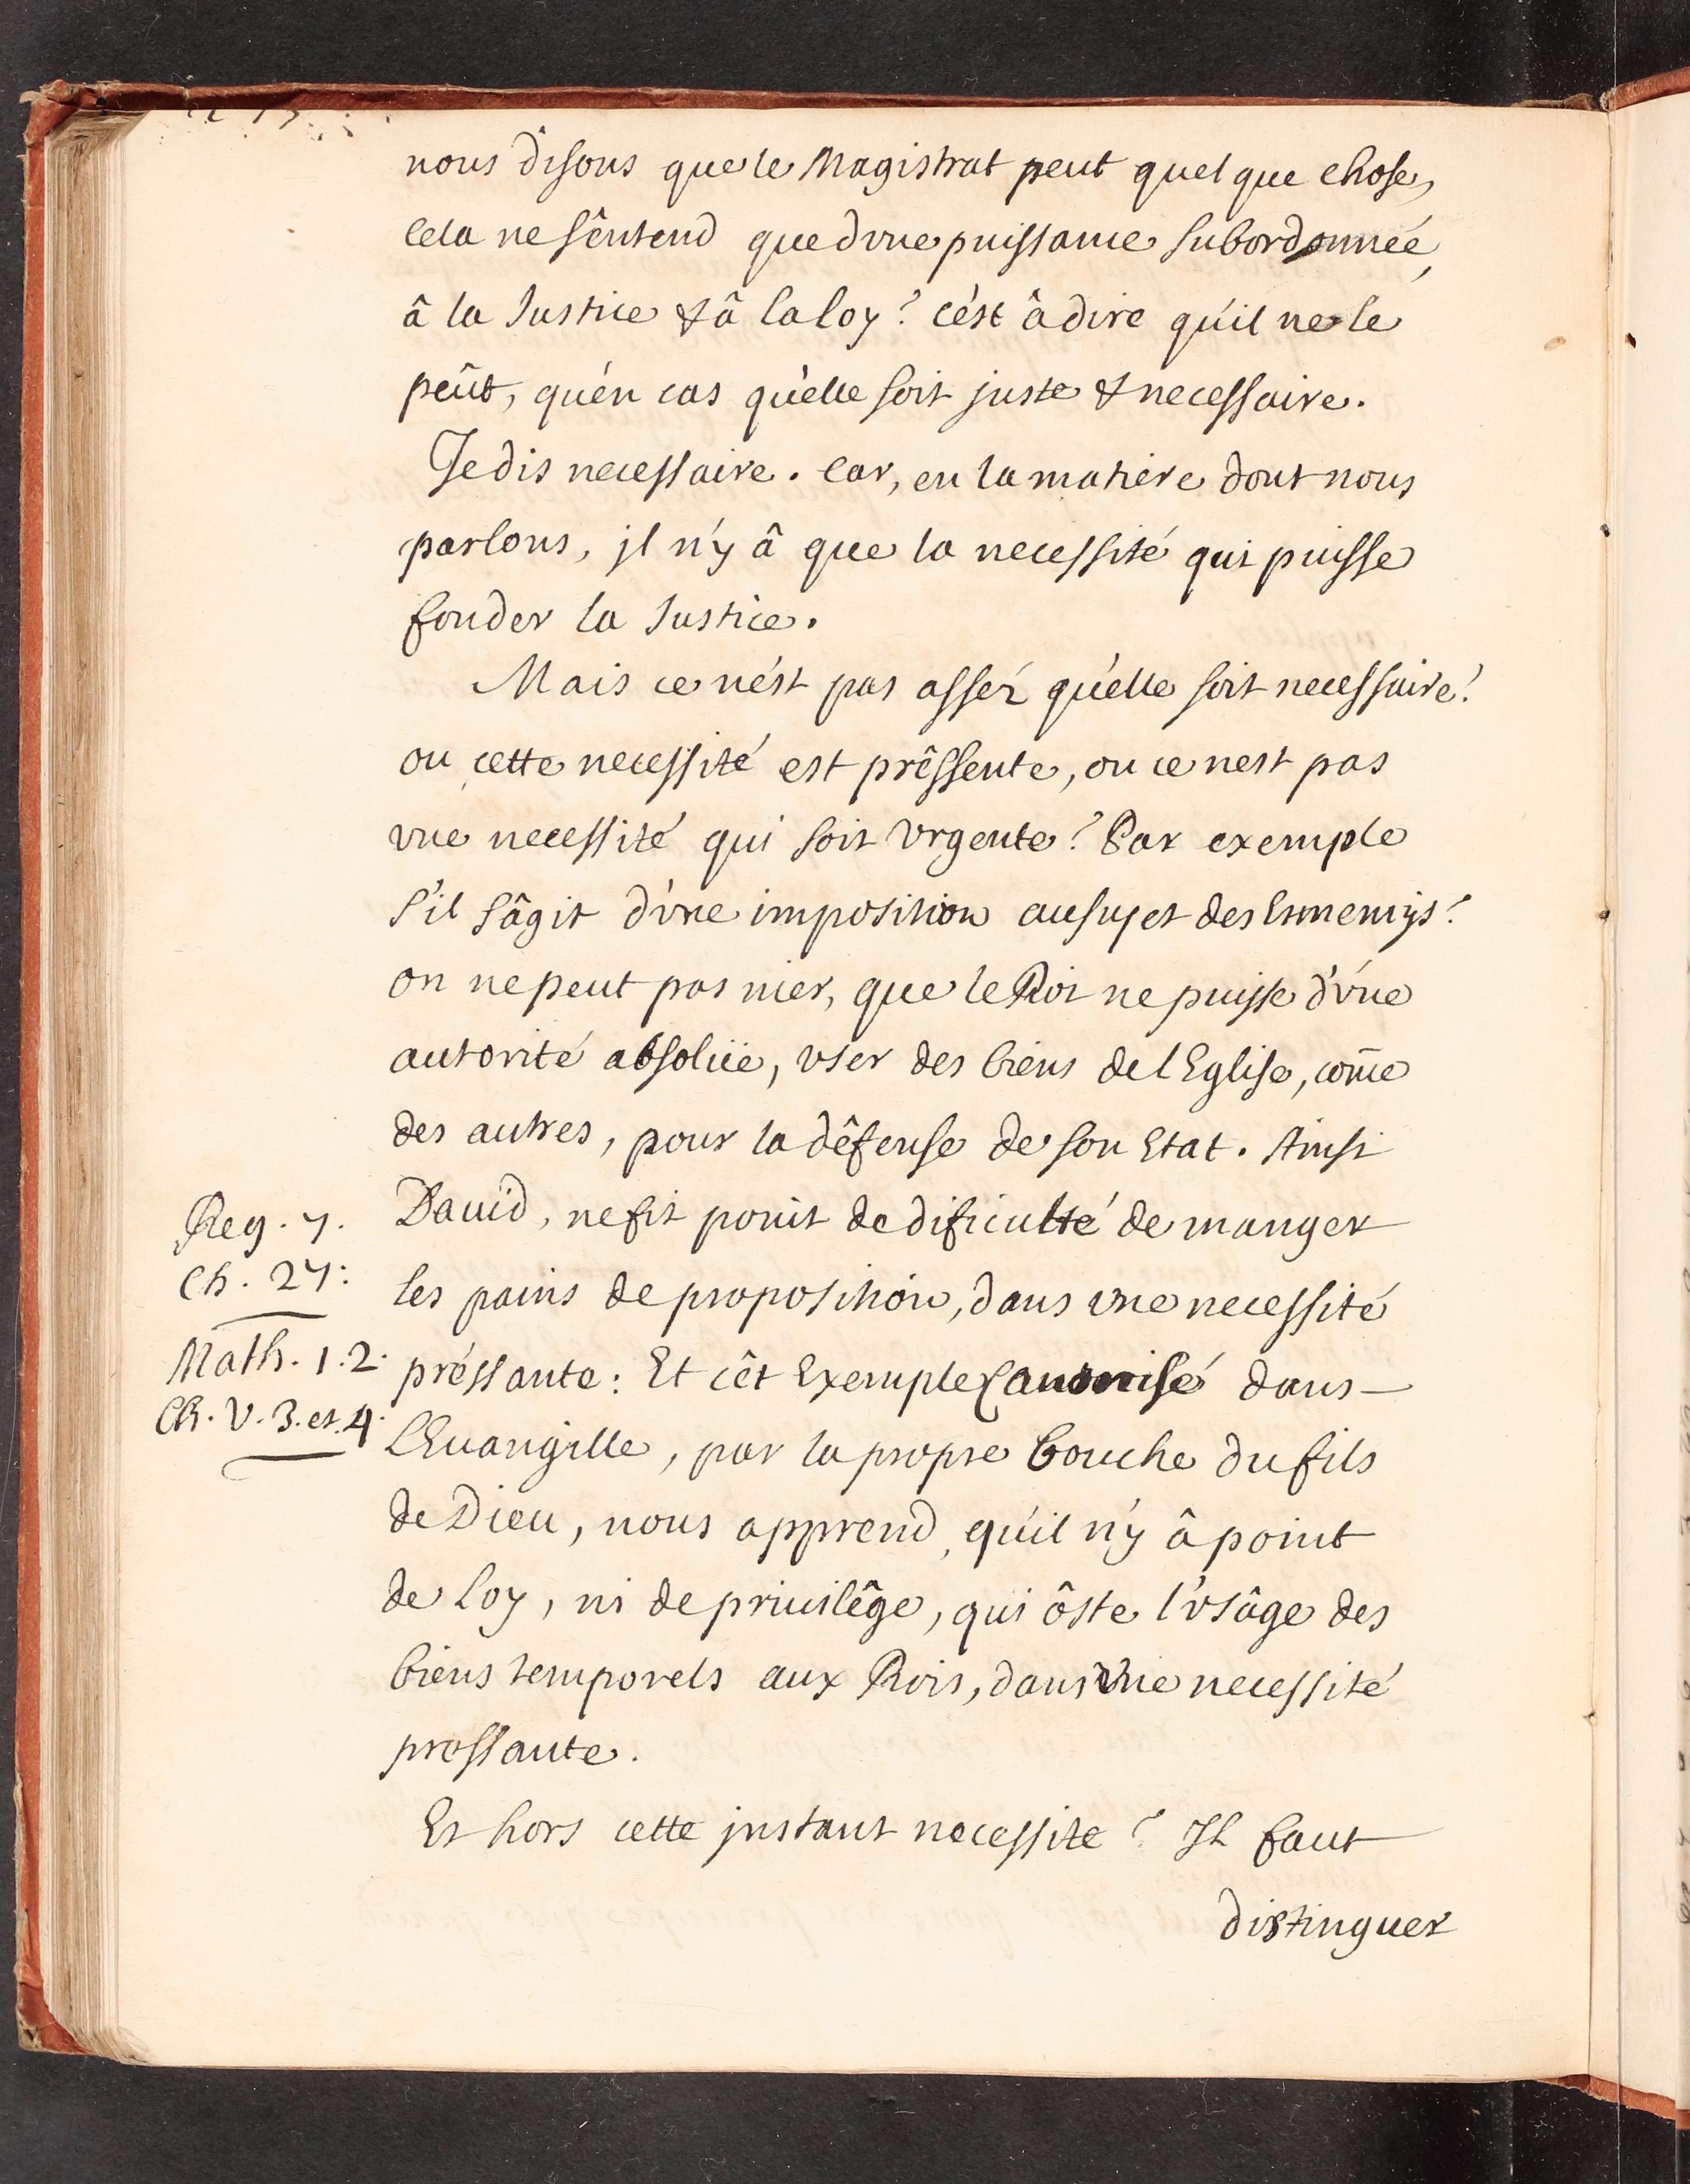 nous disons que le Magistrat peut quel que chose,
Cela ne s'êntend que d'vne puissance subordonneé,
â la Justice & â la loy? c'ést â dire qu'il ne le
peût, qu'én cas qu'elle soit juste & necessaire.
Je dis necessaire. Car, en la matiére dont nous
parlons, jl n'y â que la necessité qui puisse
fonder la Justice.
Mais ce n'ést pas asséz qu'elle soit necessaire?
ou cette necessité est prêssente, ou ce nest pas
vne necessité qui soit Vrgente? Par exemple
s'il s'âgit d'vne imposition au sujet des Ennemijs?
on ne peut pas nier, que le Roi ne puisse d'vne
autorité absolüe, vser des biens de l Eglise, com̄e
des autres, pour la dêfense de son Etat. Ainsi
Dauid, ne fit point de dificulté de manger
les pains de proposition, dans vne necessité
préssante: Et cêt Exemple Canonisé dans
L'Euangille, par la propre bouche du fils
de Dieu, nous apprend, qu'il n'y â point
de Loy, ni de priuilêge, qui ôste l'vsâge des
biens temporels aux Rois, dans vne necessité
pressante.
Et hors cette jnstant necessite? Il faut
distinguer
Reg. 7.
Ch. 27:
Math. 1.2.
Ch. V. 3. et. 4.